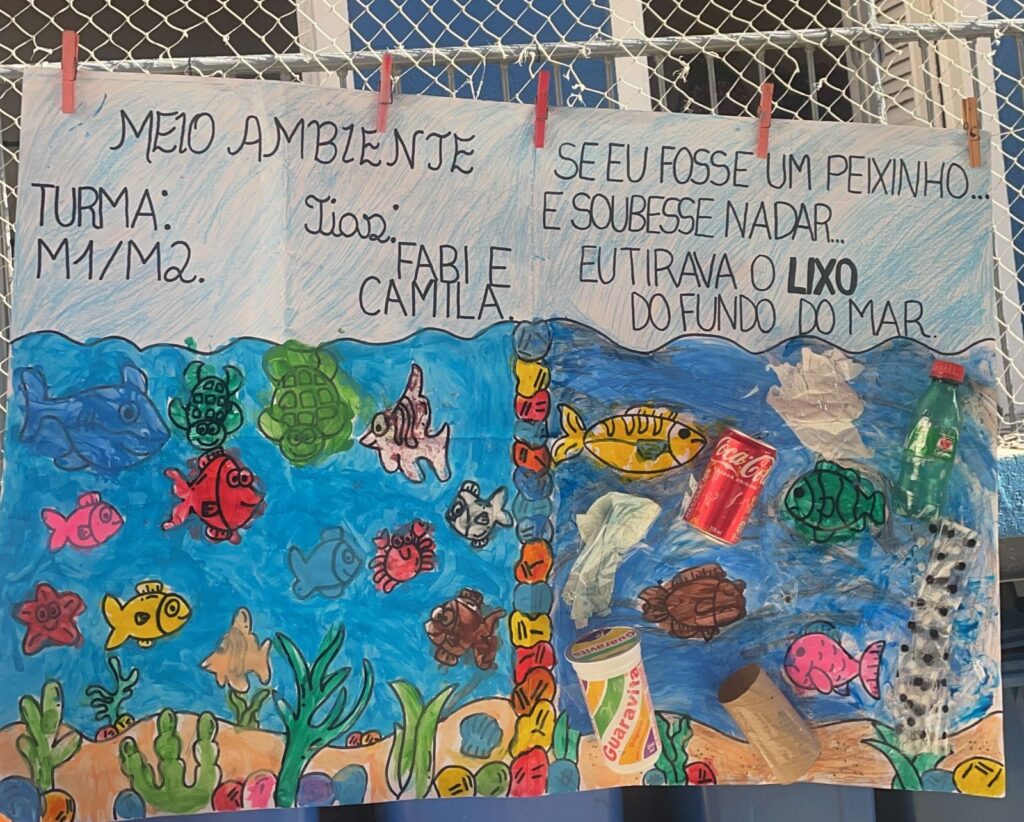 MEIO AMBIENTE
TURMA:
M1/M2.
Tias:
FABI E
CAMILA.
SE EU FOSSE UM PEIXINHO...
E SOUBESSE NADAR...
EU TIRAVA O LIXO
DO FUNDO DO MAR.
Coca-Cola
Guaravita
Guaravita